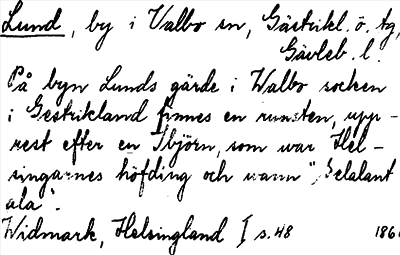 Lund, by i Valbo sn, Gästrikl. ö. tg,
Gävleb. l.
På byn Lunds gärde i Walbo socken
i Gestrikland finnes en runsten, upp-
rest efter en Isbjörn, som war Hel-
singarnes höfding och wann "Selalant
ala".
Widmark, Helsingland I s. 48 186